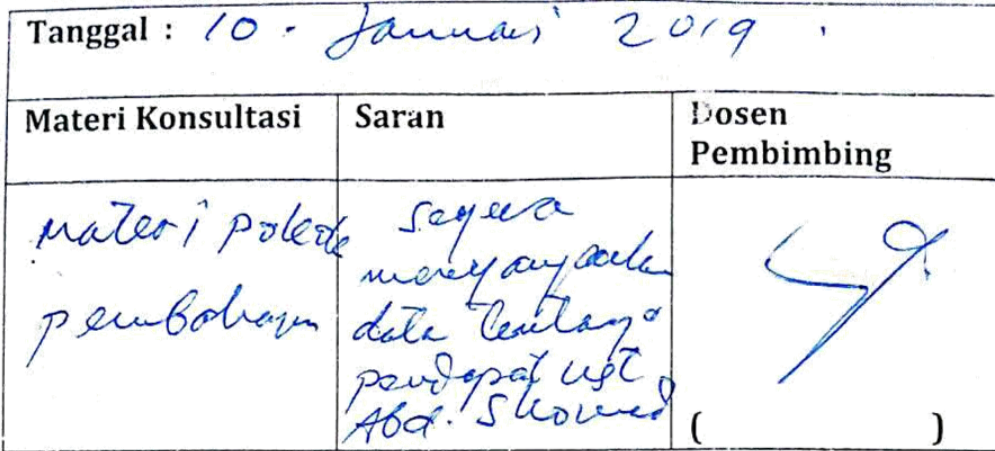 Tanggal : 10 - Januari 2019 .
Materi Konsultasi
Saran
Dosen
Pembimbing
Materi
pembahasan
segera
data tentang
pendapat ust
Abd. Shomad
( )